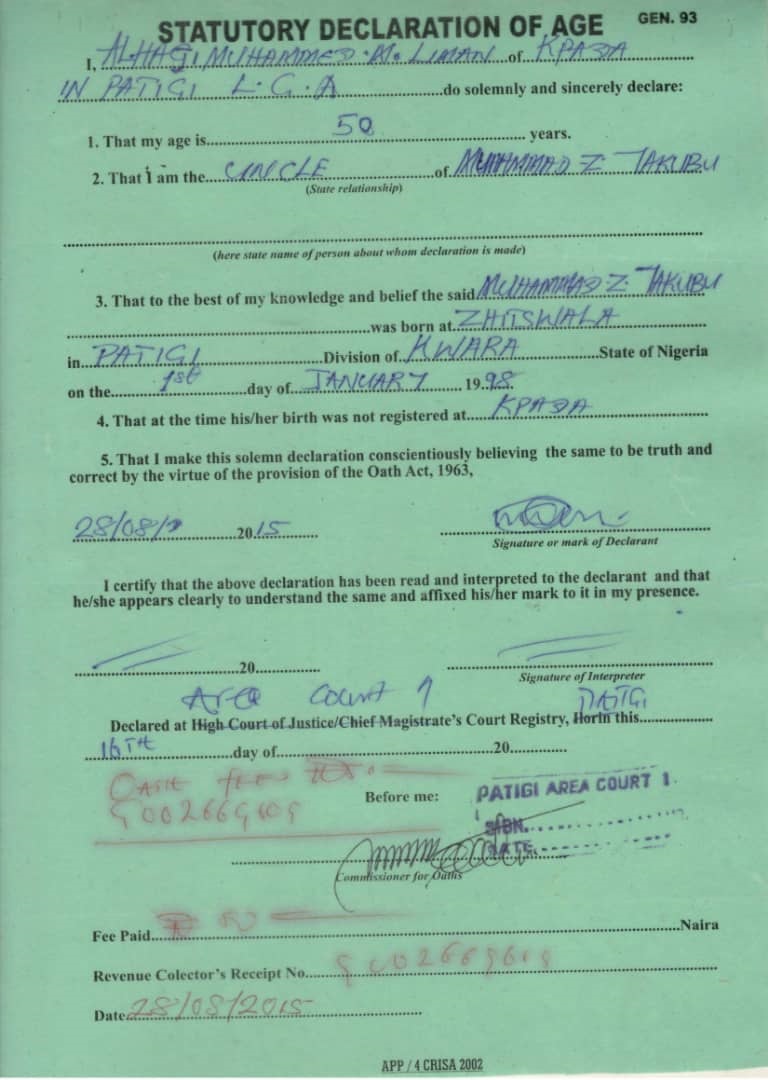 STATUTORY DECLARATION OF AGE
GEN. 93
I, ALHAGI MUHAMMED M. LIMAN of KPADA
IN PATIGI L.G.A do solemnly and sincerely declare:
1. That my age is 50 years.
2. That I am the UNCLE of MUHAMMAD Z. YAKUBU
(State relationship)
(here state name of person about whom declaration is made)
3. That to the best of my knowledge and belief the said MUHAMMAD Z. YAKUBU
was born at ZHITSWALA
in PATIGI Division of KWARA State of Nigeria
on the 1st day of JANUARY 1998.
4. That at the time his/her birth was not registered at KPADA
5. That I make this solemn declaration conscientiously believing the same to be truth and
correct by the virtue of the provision of the Oath Act, 1963,
28/08/ 2015
Signature or mark of Declarant
I certify that the above declaration has been read and interpreted to the declarant and that
he/she appears clearly to understand the same and affixed his/her mark to it in my presence.
20
Signature of Interpreter
Area Court 1 PATIGI
Declared at High Court of Justice/Chief Magistrate's Court Registry, Ilorin this
16TH day of 20
Cash
Before me:
PATIGI AREA COURT 1
SIGN.
DATE
Commissioner for Oaths
Fee Paid Naira
Revenue Colector's Receipt No.
Date 28/08/2015
APP / 4 CRISA 2002